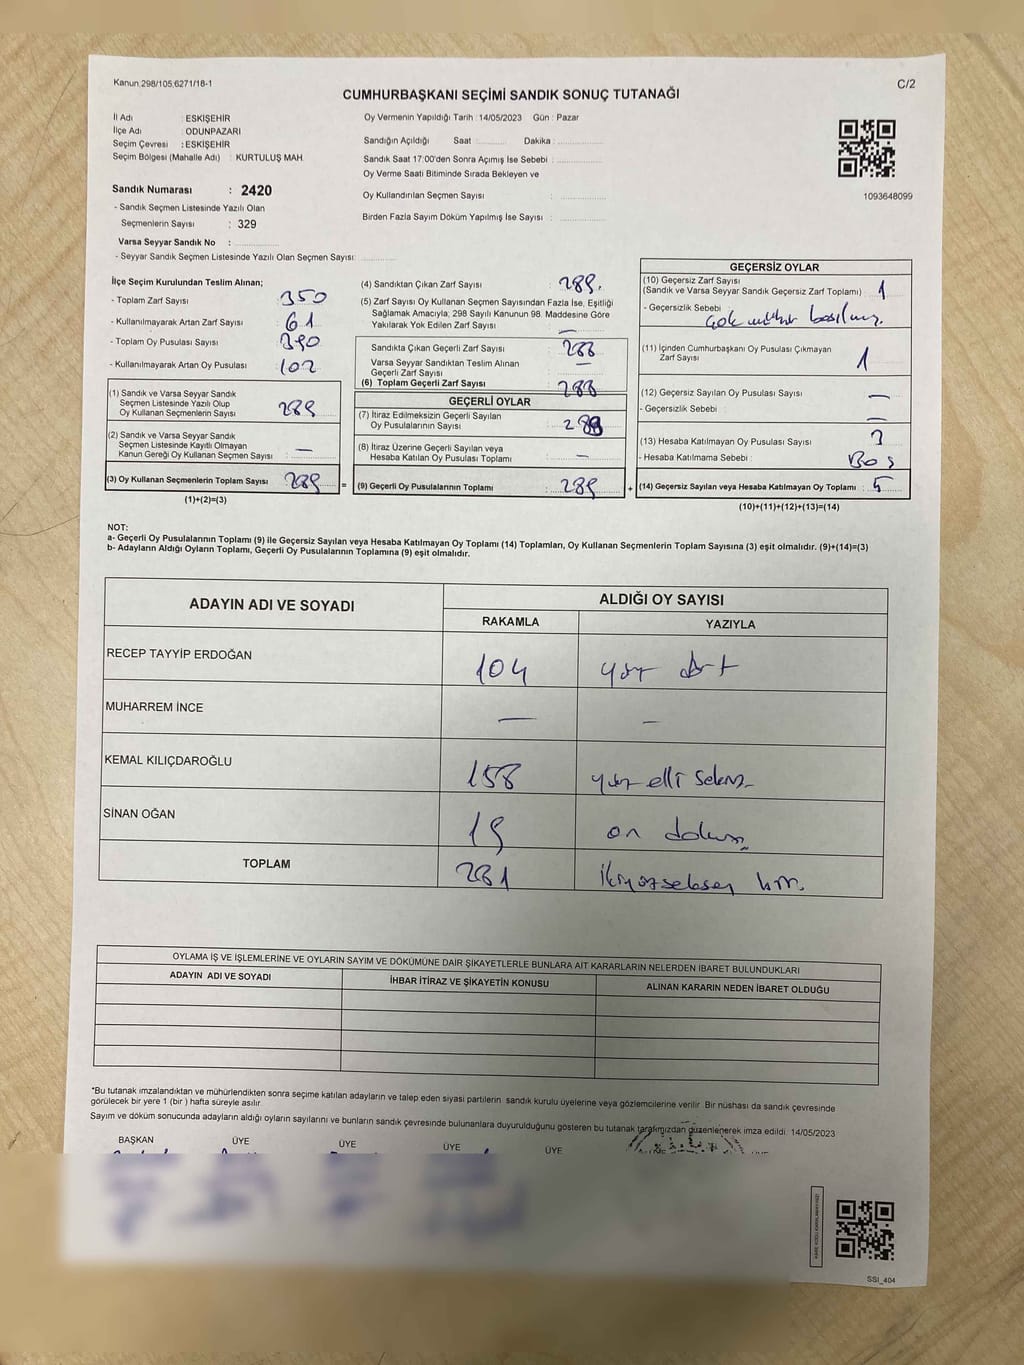 Kanun 298/105,6271/18-1
C/2
CUMHURBAŞKANI SEÇİMİ SANDIK SONUÇ TUTANAĞI
İl Adı : ESKİŞEHİR
İlçe Adı : ODUNPAZARI
Seçim Çevresi : ESKİŞEHİR
Seçim Bölgesi (Mahalle Adı) : KURTULUŞ MAH.
Sandık Numarası : 2420
- Sandık Seçmen Listesinde Yazılı Olan
Seçmenlerin Sayısı : 329
Varsa Seyyar Sandık No :
- Seyyar Sandık Seçmen Listesinde Yazılı Olan Seçmen Sayısı:
Oy Vermenin Yapıldığı Tarih : 14/05/2023 Gün : Pazar
Sandığın Açıldığı Saat : Dakika :
Sandık Saat 17:00'den Sonra Açımış İse Sebebi :
Oy Verme Saati Bitiminde Sırada Bekleyen ve
Oy Kullandırılan Seçmen Sayısı :
Birden Fazla Sayım Döküm Yapılmış İse Sayısı :
1093648099
İlçe Seçim Kurulundan Teslim Alınan;
- Toplam Zarf Sayısı : 350
- Kullanılmayarak Artan Zarf Sayısı : 61
- Toplam Oy Pusulası Sayısı : 390
- Kullanılmayarak Artan Oy Pusulası : 102
(1) Sandık ve Varsa Seyyar Sandık
Seçmen Listesinde Yazılı Olup
Oy Kullanan Seçmenlerin Sayısı : 289
(2) Sandık ve Varsa Seyyar Sandık
Seçmen Listesinde Kayıtlı Olmayan
Kanun Gereği Oy Kullanan Seçmen Sayısı : —
(3) Oy Kullanan Seçmenlerin Toplam Sayısı : 289 =
(1)+(2)=(3)
(4) Sandıktan Çıkan Zarf Sayısı : 289.
(5) Zarf Sayısı Oy Kullanan Seçmen Sayısından Fazla İse, Eşitliği
Sağlamak Amacıyla, 298 Sayılı Kanunun 98. Maddesine Göre
Yakılarak Yok Edilen Zarf Sayısı : —
Sandıkta Çıkan Geçerli Zarf Sayısı : 288
Varsa Seyyar Sandıktan Teslim Alınan
Geçerli Zarf Sayısı : —
(6) Toplam Geçerli Zarf Sayısı : 288
GEÇERLİ OYLAR
(7) İtiraz Edilmeksizin Geçerli Sayılan
Oy Pusulalarının Sayısı :
(8) İtiraz Üzerine Geçerli Sayılan veya
Hesaba Katılan Oy Pusulası Toplamı : —
(9) Geçerli Oy Pusulalarının Toplamı : 289 +
GEÇERSİZ OYLAR
(10) Geçersiz Zarf Sayısı
(Sandık ve Varsa Seyyar Sandık Geçersiz Zarf Toplamı) : 1
- Geçersizlik Sebebi :
Çok mühür basılmış.
(11) İçinden Cumhurbaşkanı Oy Pusulası Çıkmayan
Zarf Sayısı : 1
(12) Geçersiz Sayılan Oy Pusulası Sayısı : —
- Geçersizlik Sebebi : —
(13) Hesaba Katılmayan Oy Pusulası Sayısı : 3
- Hesaba Katılmama Sebebi : Boş
(14) Geçersiz Sayılan veya Hesaba Katılmayan Oy Toplamı : 5
(10)+(11)+(12)+(13)=(14)
NOT:
a- Geçerli Oy Pusulalarının Toplamı (9) ile Geçersiz Sayılan veya Hesaba Katılmayan Oy Toplamı (14) Toplamları, Oy Kullanan Seçmenlerin Toplam Sayısına (3) eşit olmalıdır. (9)+(14)=(3)
b- Adayların Aldığı Oyların Toplamı, Geçerli Oy Pusulalarının Toplamına (9) eşit olmalıdır.
ADAYIN ADI VE SOYADI
ALDIĞI OY SAYISI
RAKAMLA YAZIYLA
RECEP TAYYİP ERDOĞAN 104 yüz dört
MUHARREM İNCE — —
KEMAL KILIÇDAROĞLU 158 yüz elli sekiz
SİNAN OĞAN 19 on dokuz
TOPLAM 281 ikiyüzseksen bir.
OYLAMA İŞ VE İŞLEMLERİNE VE OYLARIN SAYIM VE DÖKÜMÜNE DAİR ŞİKAYETLERLE BUNLARA AİT KARARLARIN NELERDEN İBARET BULUNDUKLARI
ADAYIN ADI VE SOYADI İHBAR İTİRAZ VE ŞİKAYETİN KONUSU ALINAN KARARIN NEDEN İBARET OLDUĞU
*Bu tutanak imzalandıktan ve mühürlendikten sonra seçime katılan adayların ve talep eden siyasi partilerin sandık kurulu üyelerine veya gözlemcilerine verilir. Bir nüshası da sandık çevresinde
görülecek bir yere 1 (bir ) hafta süreyle asılır.
Sayım ve döküm sonucunda adayların aldığı oyların sayılarını ve bunların sandık çevresinde bulunanlara duyurulduğunu gösteren bu tutanak tarafımızdan düzenlenerek imza edildi. 14/05/2023
BAŞKAN ÜYE ÜYE ÜYE ÜYE ÜYE
SSI_404